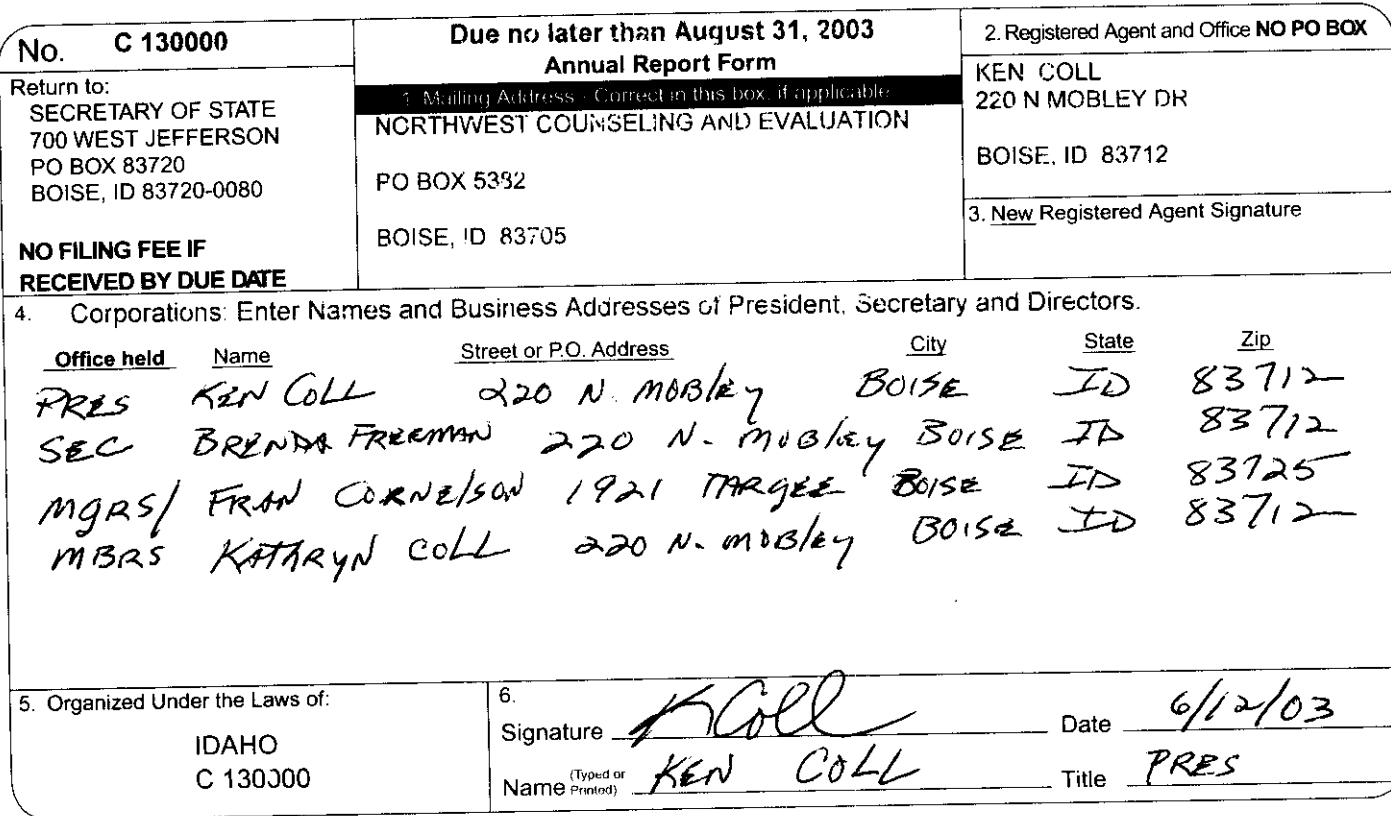 No. C 130000
Return to:
SECRETARY OF STATE
700 WEST JEFFERSON
PO BOX 83720
BOISE, ID 83720-0080
NO FILING FEE IF
RECEIVED BY DUE DATE
Due no later than August 31, 2003
Annual Report Form
1. Mailing Address - Correct in this box, if applicable
NORTHWEST COUNSELING AND EVALUATION
PO BOX 5382
BOISE, ID 83705
2. Registered Agent and Office NO PO BOX
KEN COLL
220 N MOBLEY DR
BOISE, ID 83712
3. New Registered Agent Signature
4. Corporations: Enter Names and Business Addresses of President, Secretary and Directors.
Office held Name Street or P.O. Address City State Zip
PRES KEN COLL 220 N. MOBLEY BOISE ID 83712
SEC BRENDA FREEMAN 220 N. MOBLEY BOISE ID 83712
MGRS/ FRAN CORNELSON 1921 TARGEE BOISE ID 83725
MBRS KATHRYN COLL 220 N. MOBLEY BOISE ID 83712
5. Organized Under the Laws of:
IDAHO
C 130000
6.
Signature K Coll Date 6/12/03
Name (Typed or Printed) KEN COLL Title PRES